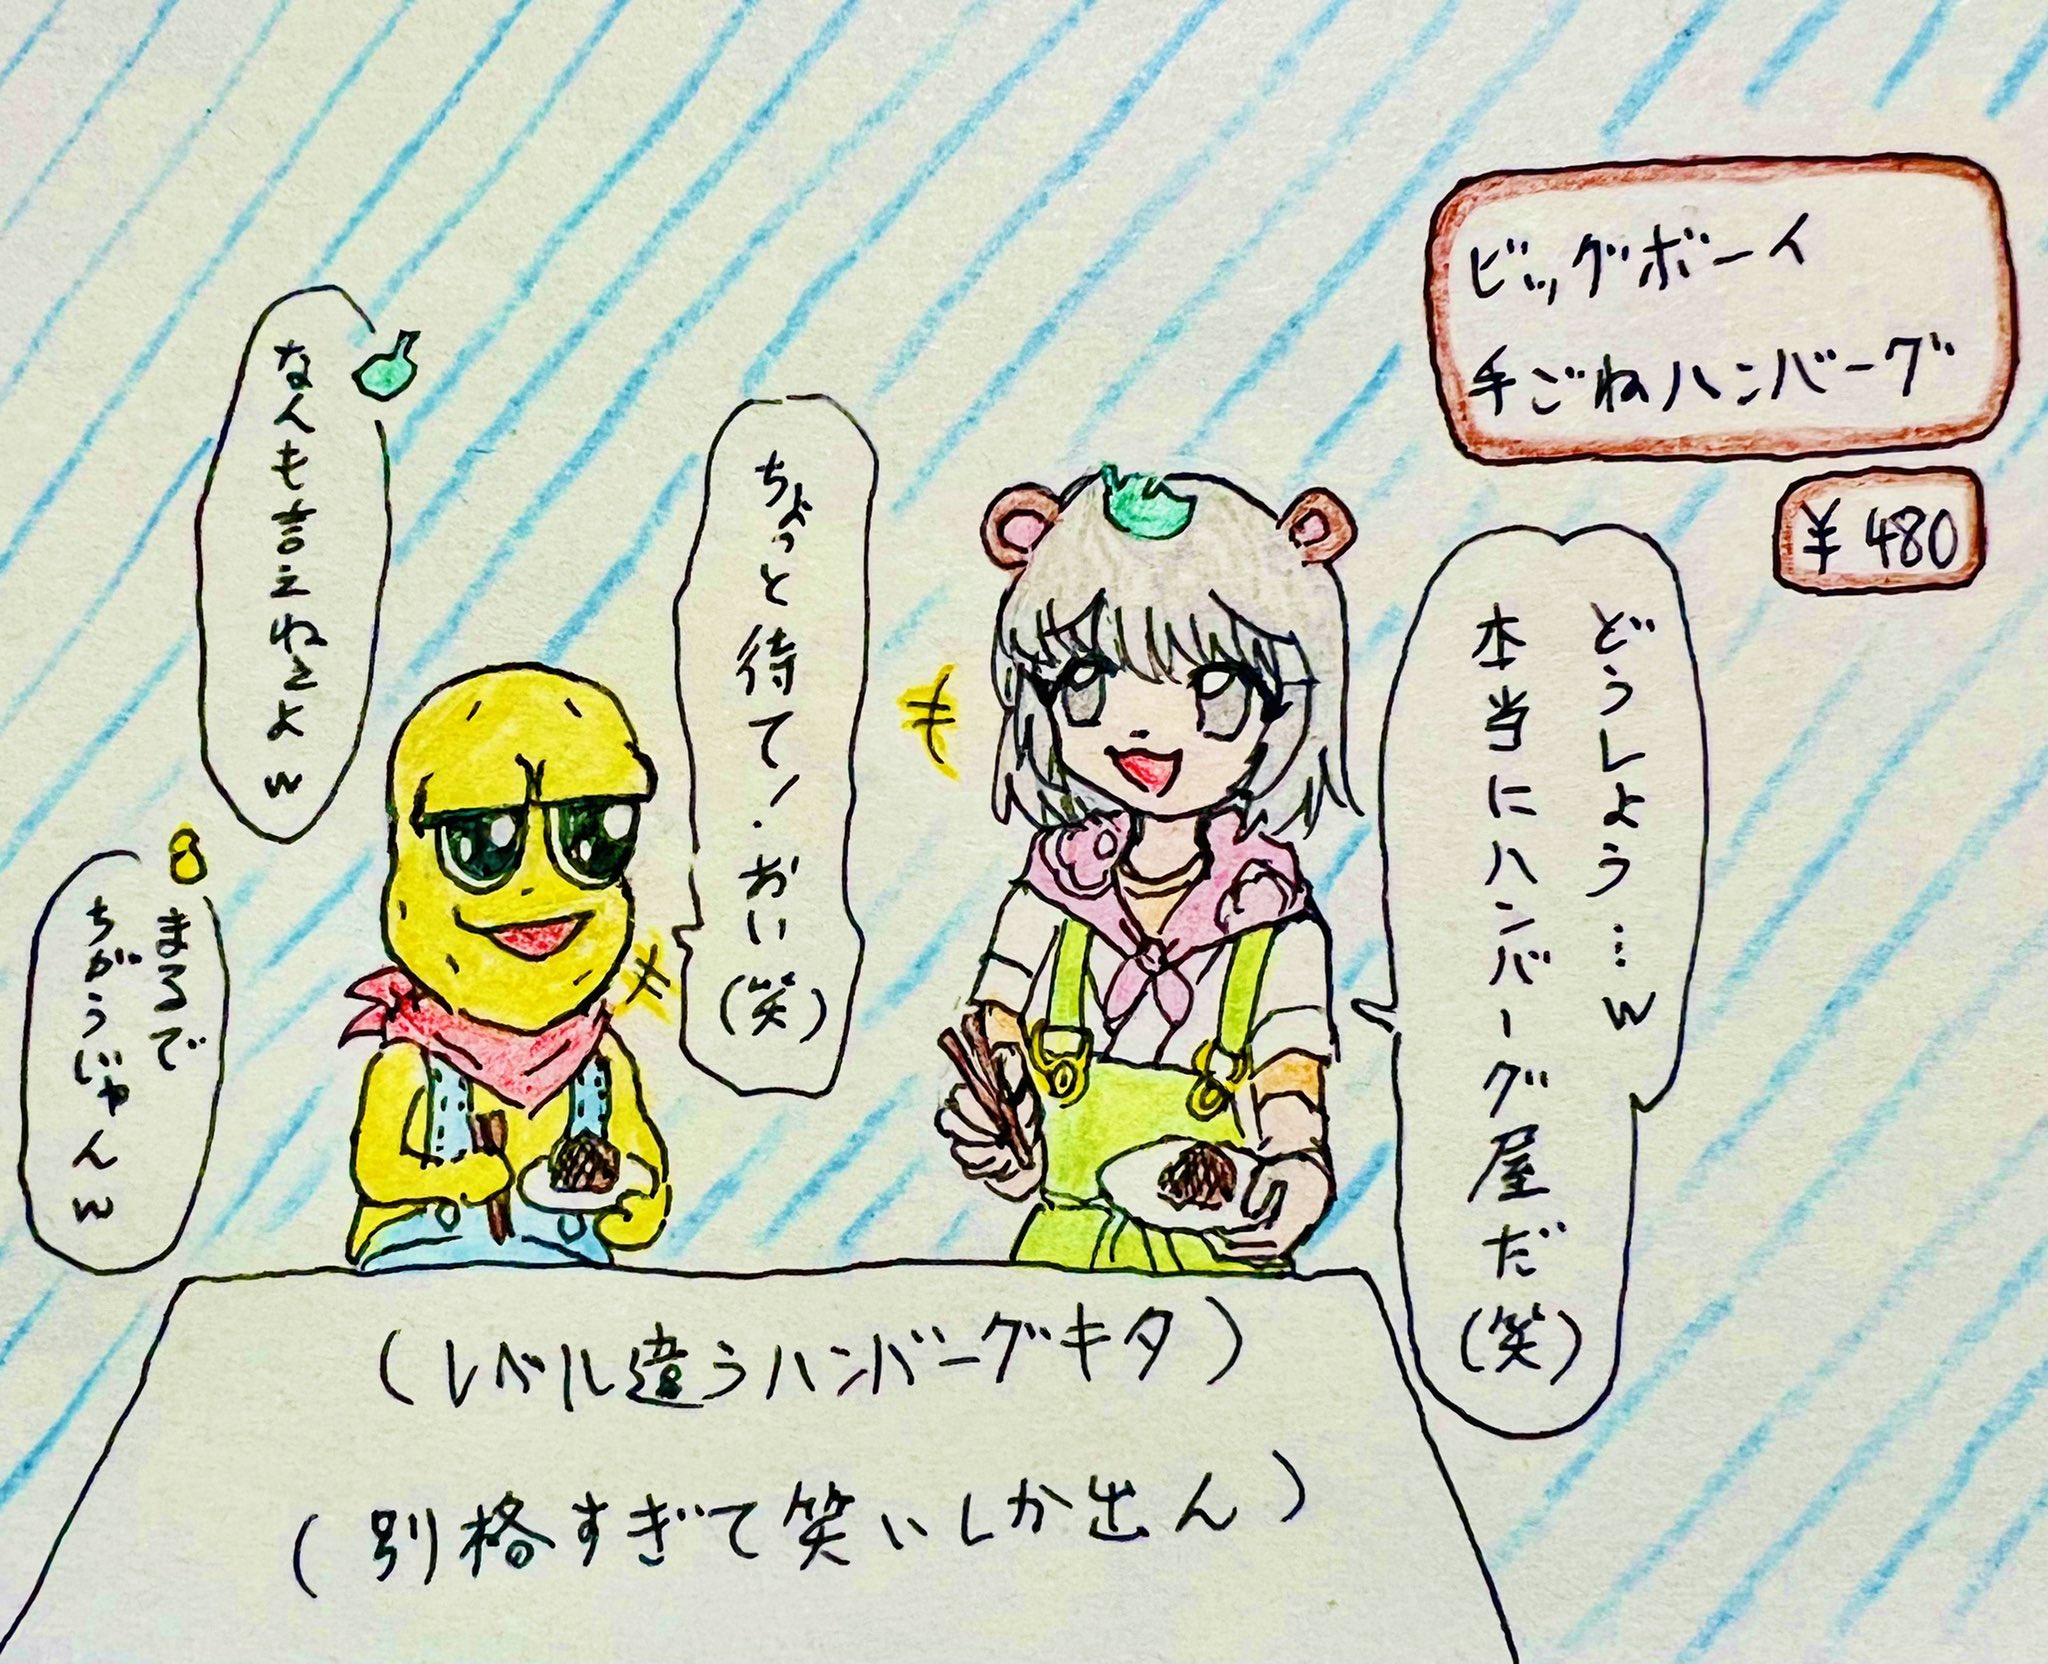 ビッグボーイ
手ごねハンバーグ
¥480
どうしよう…w
本当にハンバーグ屋だ
(笑)
ちょっと待て!おい(笑)
なんも言えねえよw
まるで
ちがうじゃんw
(レベル違うハンバーグキタ)
(別格すぎて笑いしか出ん)